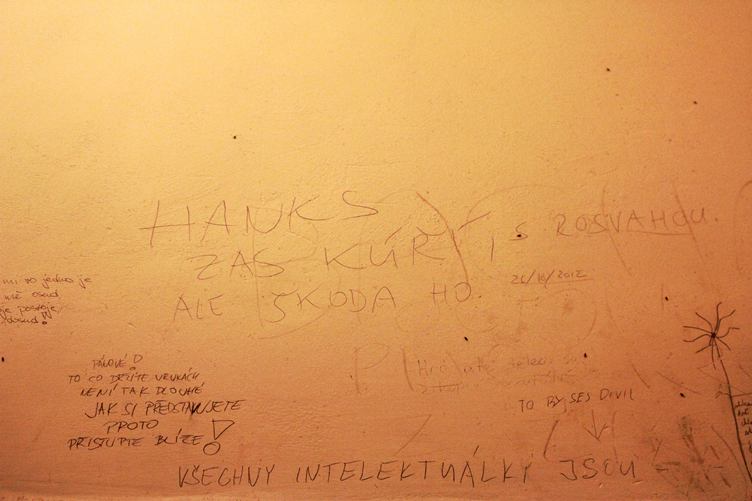 HANKS
ZAS KÚRÝ I S ROSVAHOU.
ALE ŠKODA HO.
26/10/2012
mi to jedno je
mě osud
je postoje
dosud!
PÁNOVÉ!
TO CO DRŽÍTE VRUKÁCH
NENÍ TAK DLOUHÉ
JAK SI PŘEDSTAVUJETE
PROTO
PRISTUPTE BLÍŽE!
TO BY SES DIVIL
VŠECHNY INTELEKTUÁLKY JSOU